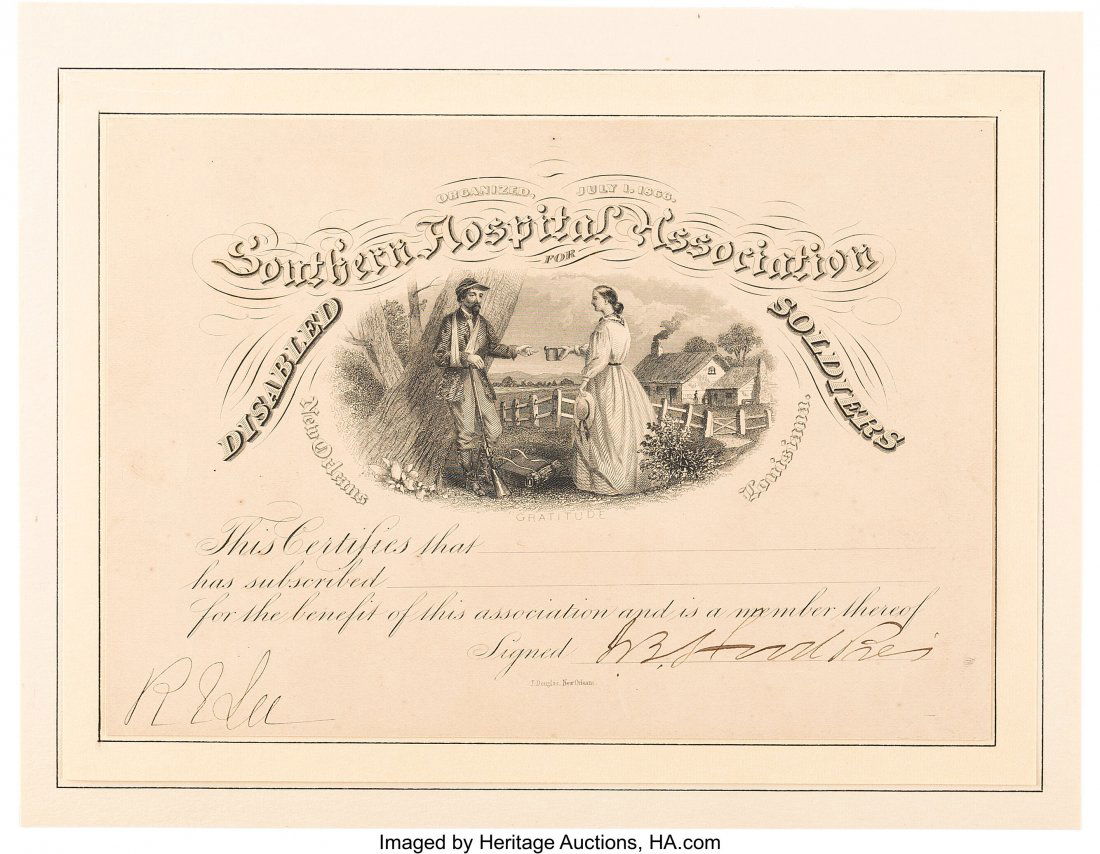 ORGANIZED, JULY 1, 1866.
Southern Hospital Association
FOR
DISABLED SOLDIERS
New Orleans Louisiana.
GRATITUDE
This Certifies that
has subscribed
for the benefit of this association and is a member thereof
Signed J B Hood Pres
J. Douglas, New Orleans.
R E Lee
Imaged by Heritage Auctions, HA.com